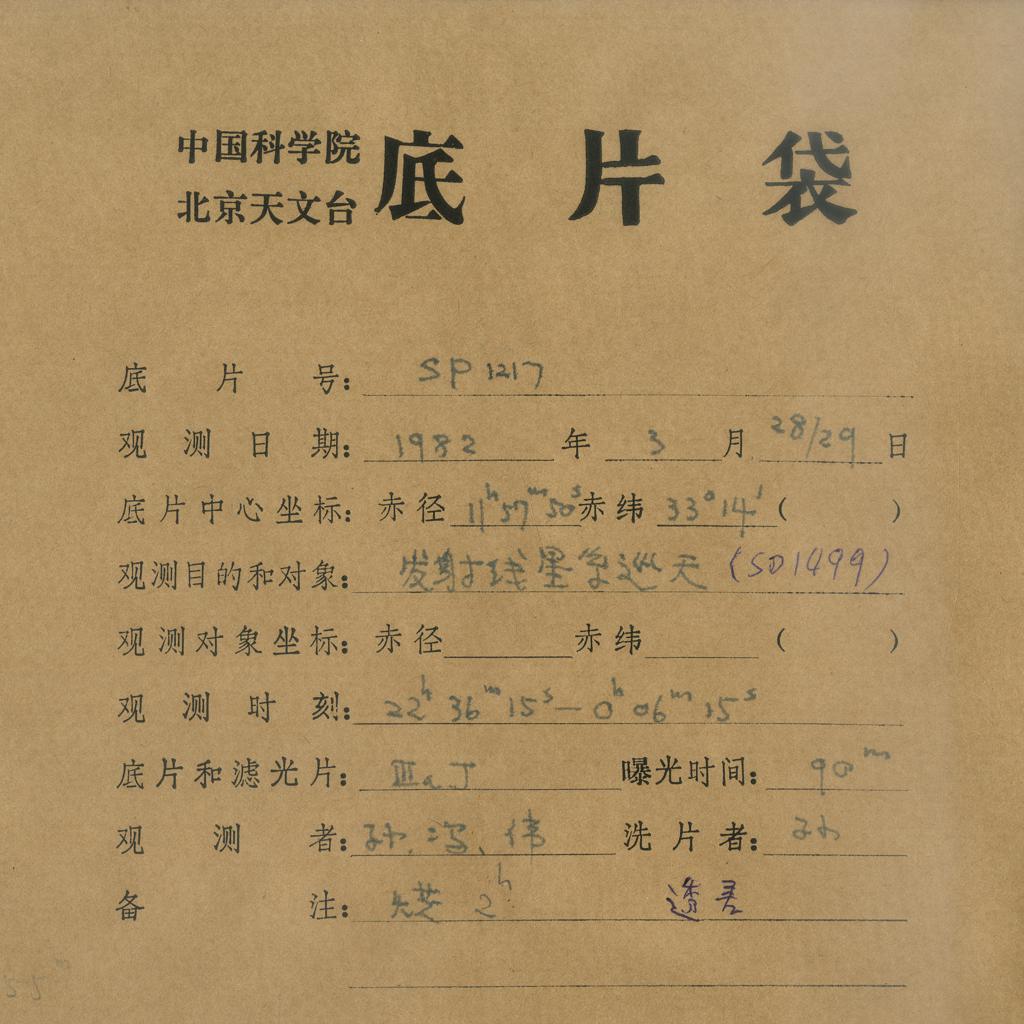 中国科学院
北京天文台
底片袋
底片号: SP1217
观测日期: 1982年3月28/29日
底片中心坐标: 赤径11ʰ57ᵐ50ˢ赤纬33°14′( )
观测目的和对象: 发射线星系巡天 (SO1499)
观测对象坐标: 赤径 赤纬 ( )
观测时刻: 22ʰ36ᵐ15ˢ—0ʰ06ᵐ15ˢ
底片和滤光片: ⅢaJ 曝光时间: 90ᵐ
观测者: 孙、冯、伟 洗片者: 孙
备注: 2ʰ 透差
55ᵐ